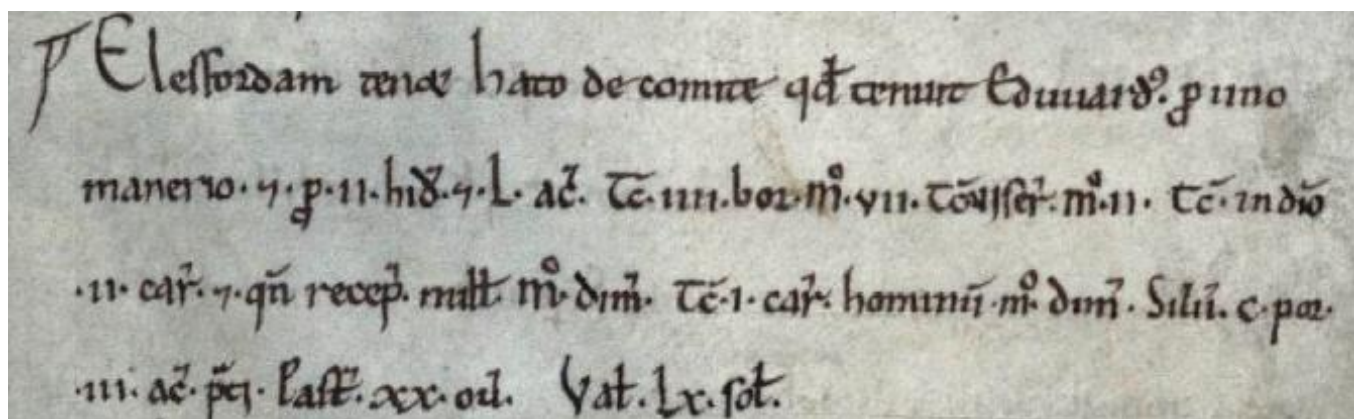 Elesfordam tenet hato de comite qđ tenuit Eduuard⁹. ꝓ uno
manerio. ⁊. ꝓ. II. hiđ. ⁊. L. ac̄. Tc̄. IIII. bor. m̊. VII. Tc̄ V ser̄. m̊. II. Tc̄. in dn̄io
.II. car̄. ⁊. qn̄ recep̄. null. m̊. dim̄. Tc̄. I. car̄. hominū. m̊. dim̄. Silū. c. por.
.III. ac̄. p̄ti. Past̄. XX. oū. Val. Lx. sol.